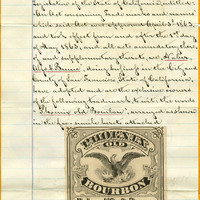 Legislature of the State of California, entitled
"An Act concerning Trade marks and names"
which said Act was approved April 3d, 1863,
and took effect from and after the 1st day
of May 1863, and all acts amendatory thereof
and supplementary thereto, we,
doing business in the City and
County of San Francisco, State of California,
have adopted and are the exclusive owners
of the following trademark to wit: the words
"Phoenix Old Bourbon", arranged as shown
in the fac-simile hereto attached
PHOENIX
OLD
BOURBON